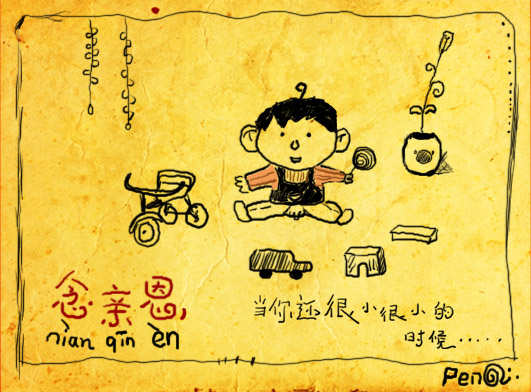 念亲恩,
nian qīn èn
当你还很小很小的
时候.....
Pen@: